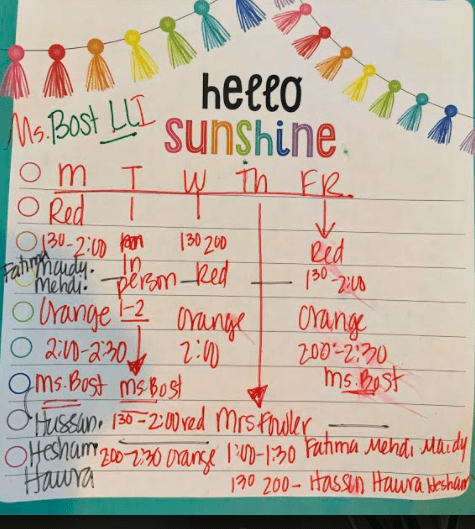 hello
sunshine
Ms. Bost LLI
M T W Th FR
Red
130-2:00 130 200 Red
Fatima Maidy. In 130-2:00
Mehdi. person Red
Orange 1-2 Orange Orange
2:00-2:30 2:00 200-2:30
Ms. Bost Ms. Bost Ms. Bost
Hussan. 130-2:00 red Mrs Fowler
Hesham 200-230 Orange 1:00-1:30 Fatima Mehdi Maidy
Hawra 130 200- Hassan Hawra Hesham